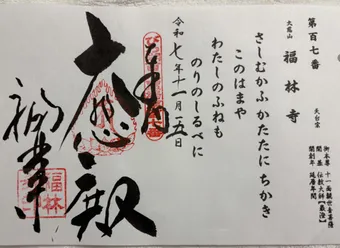 第百七番
大慈山
福林寺
天台宗
御本尊 十一面観世音菩薩
開基 伝教大師【最澄】
開創年 延暦年間
さしむかふかたたにちかき
このはまや
わたしのふねも
のりのしるべに
令和七年十一月一五日
奉拝
大悲殿
福林寺
福林